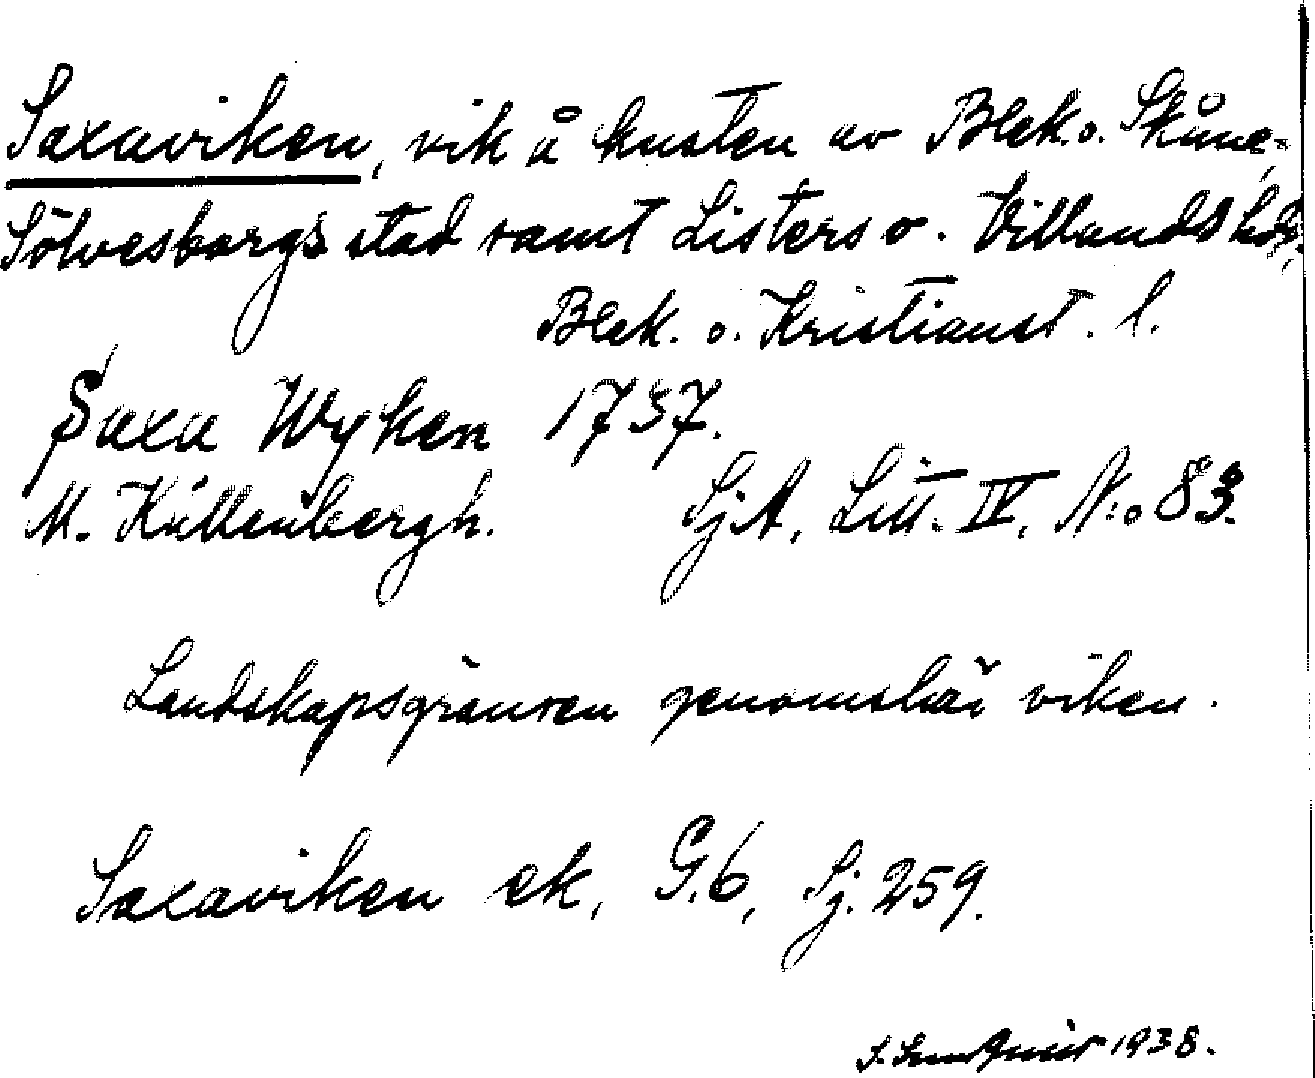 Saxaviken, vik å kusten av Blek. o. Skåne,
Sölvesborgs stad samt Listers o. Villands hdr,
Blek. o. Kristianst. l.
Saxa Wyken 1757.
M. Källenbergh. SjA, Litt. IV, N:o 83.
Landskapsgränsen genomskär viken.
Saxaviken ek, G.6, Sj. 259.
1938.